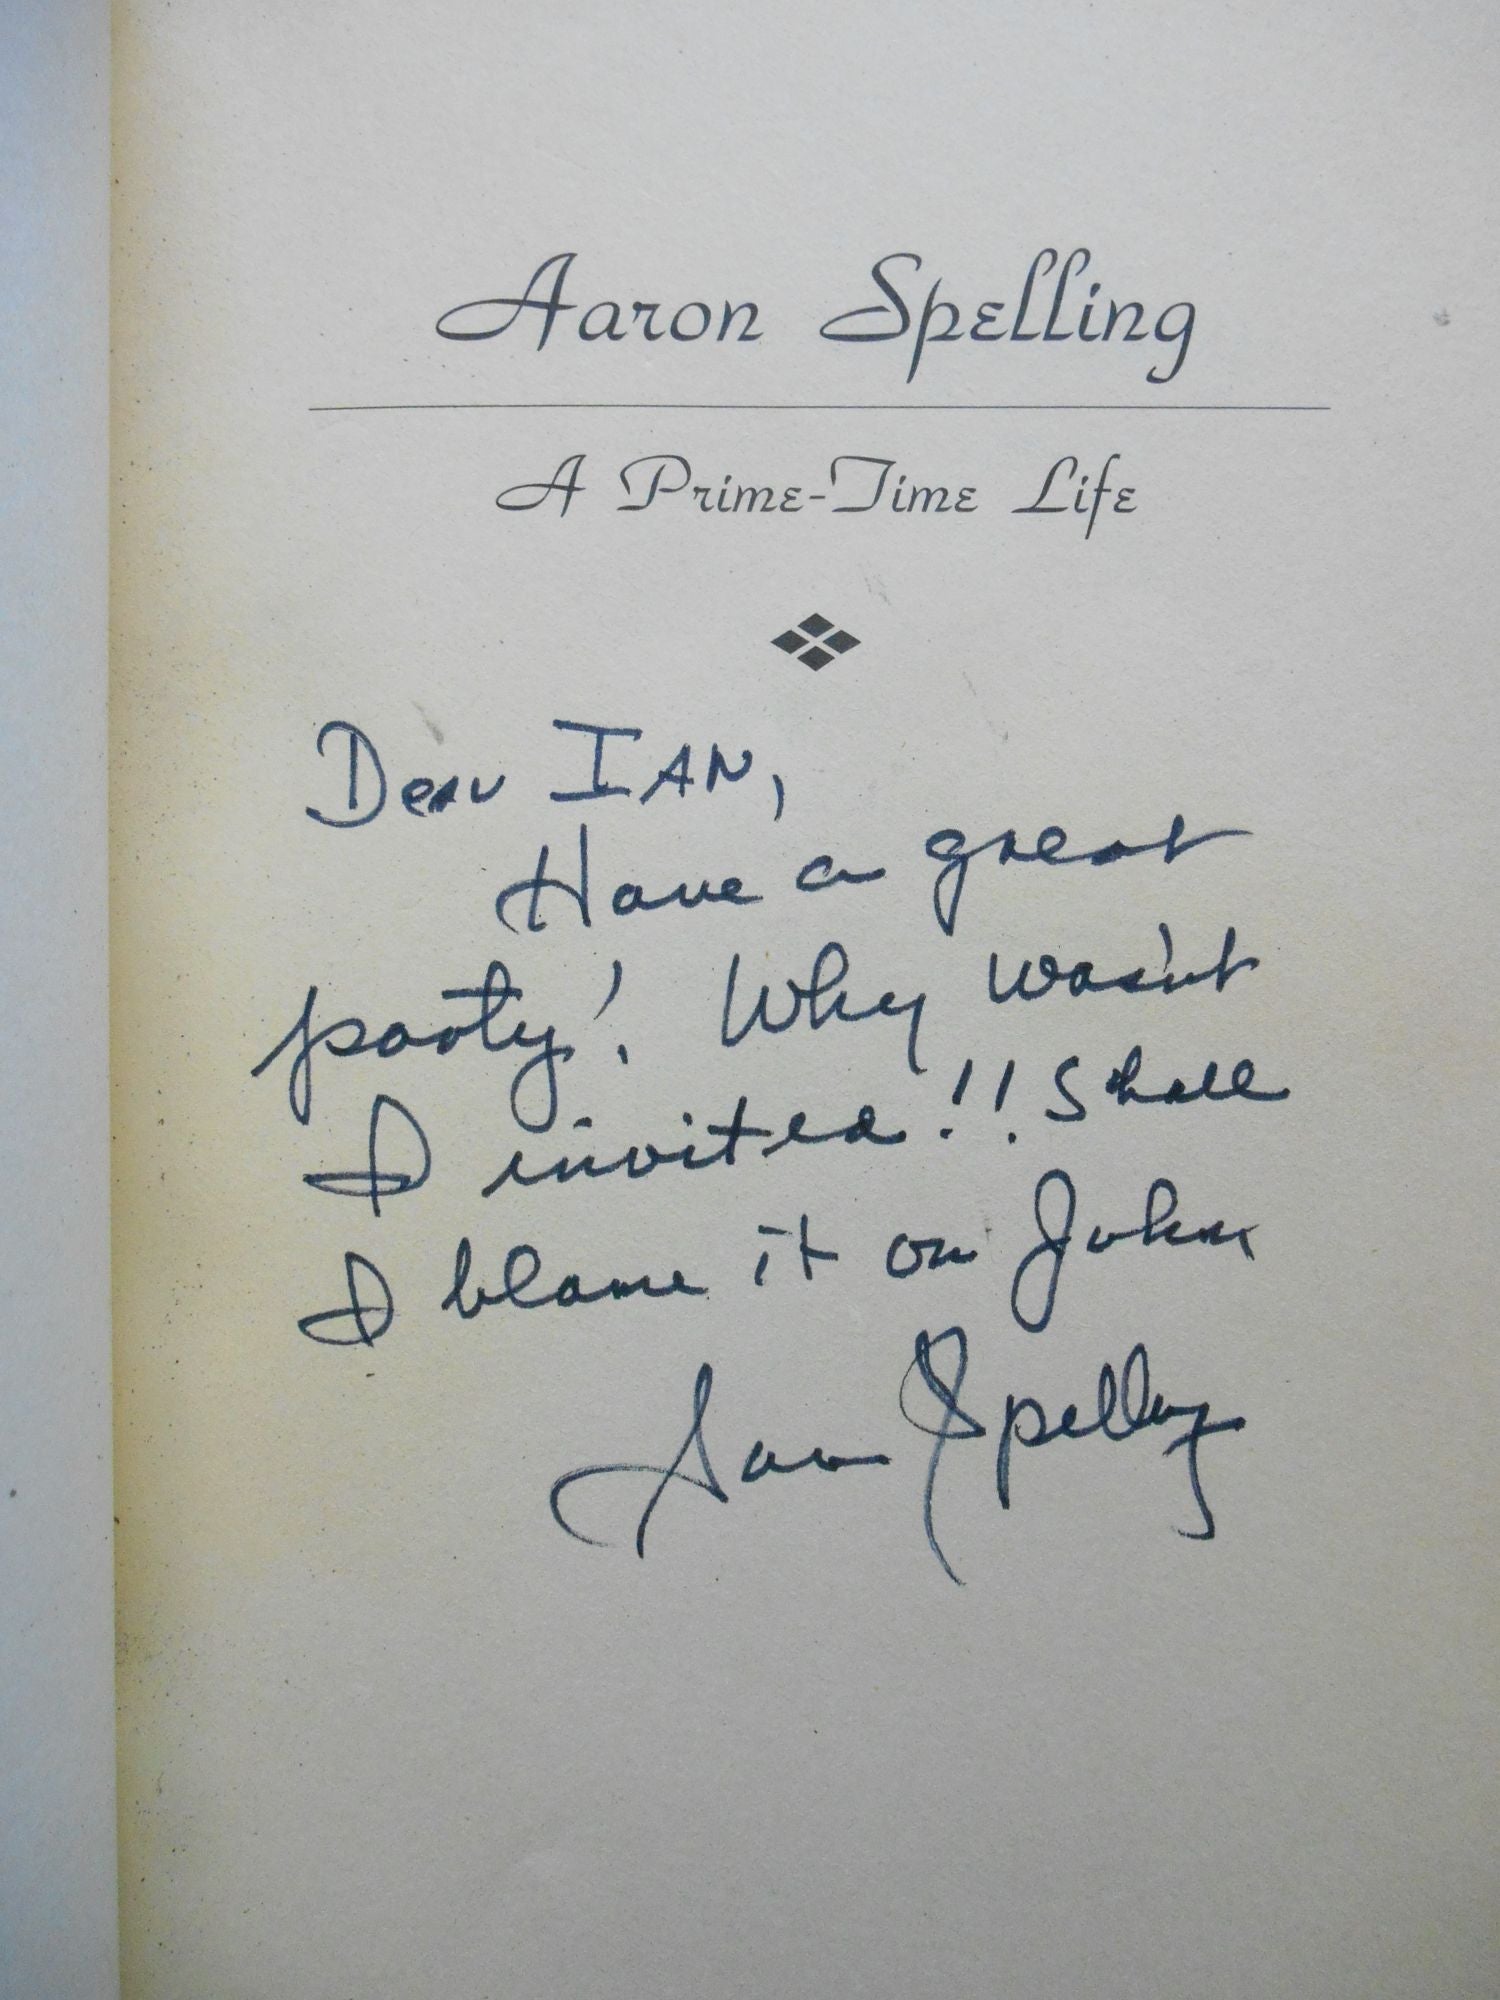 Aaron Spelling
A Prime-Time Life
Dear IAN,
Have a great
party! Why wasn't
I invited!! Shall
I blame it on John
Aaron Spelling